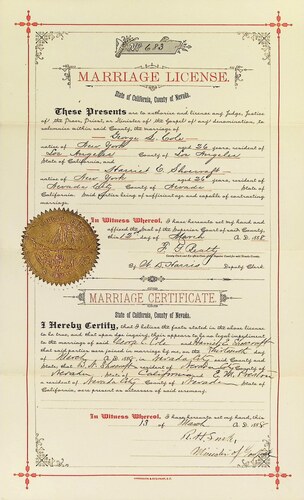 No 683
MARRIAGE LICENSE.
State of California, County of Nevada.
These Presents are to authorize and license any Judge, Justice
of the Peace, Priest, or Minister of the Gospel of any denomination, to
solemnize within said County, the marriage of
George S. Cole
native of New York aged 26 years, resident of
Los Angeles County of Los Angeles
State of California, and
Harriet E. native of New York aged 26 years, resident of
Nevada City County of Nevada State of
California. Said parties being of sufficient age and capable of contracting
marriage.
In Witness Whereof, I have hereunto set my hand and
affixed the Seal of the Superior Court of said County,
this 12th day of March A. D. 1888
F. G.
County Clerk and Clerk of the Superior Court
By Deputy Clerk
MARRIAGE CERTIFICATE.
State of California, County of Nevada.
I Hereby Certify, that I believe the facts stated in the above license
to be true, and that upon due inquiry, there appears to be no legal impediment
to the marriage of said George S. Cole and Harriet E.
that said parties were joined in marriage by me, on the Thirteenth day
of March A. D. 188 in Nevada City said County and
State; that resident of Nevada City County of
Nevada State of California and
a resident of Nevada City County of Nevada State of
California, were present as witnesses of said ceremony.
In Witness Whereof, I have hereunto set my hand, this
13 of March A. D. 1888
R. H.
Minister of